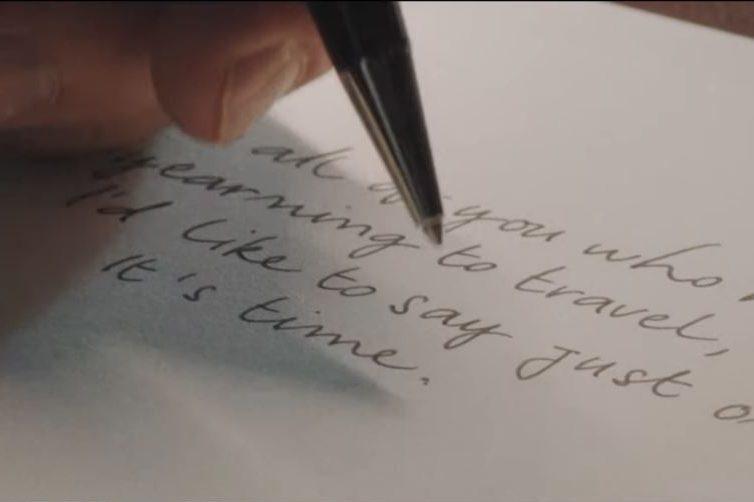 all of you who
yearning to travel,
I'd like to say just
It's time.